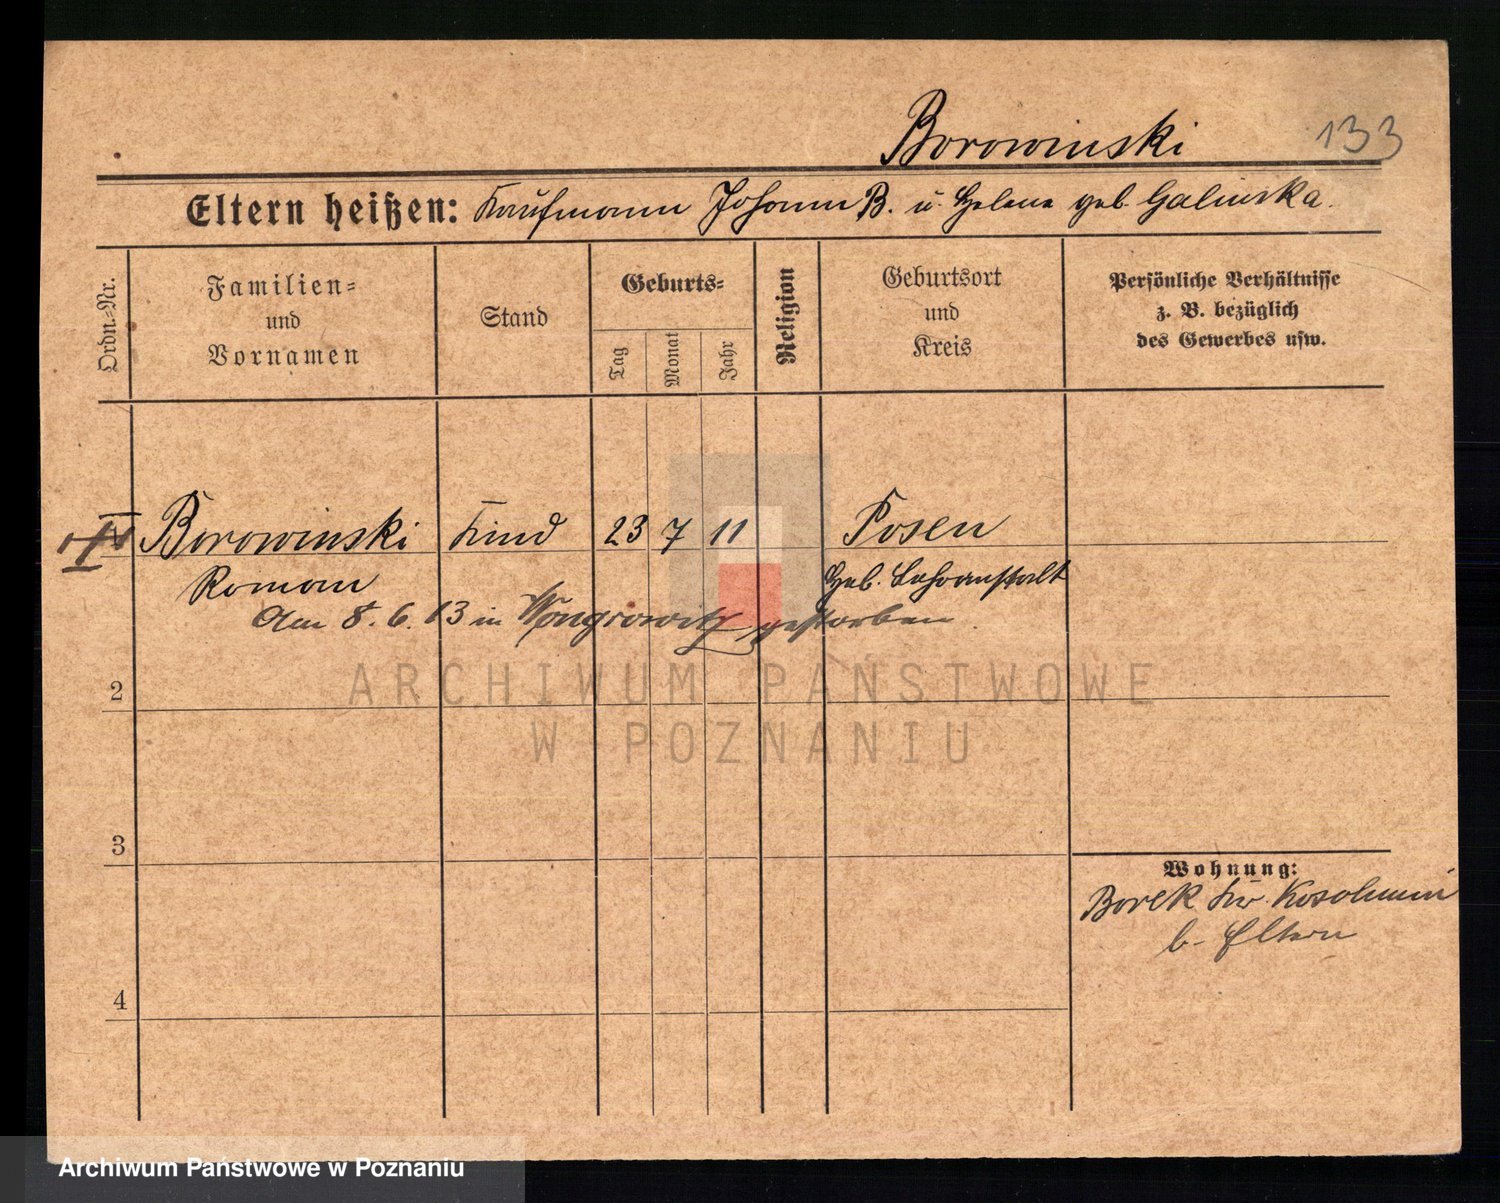 Borowinski 133
Eltern heißen: Kaufmann Johann B. u. Helene geb. Galinska.
Ordn.-Nr.
Familien=
und
Vornamen
Stand
Geburts=
Tag
Monat
Jahr
Religion
Geburtsort
und
Kreis
Persönliche Verhältnisse
z. B. bezüglich
des Gewerbes usw.
Borowinski Kind 23 7 11 Posen
Roman Heb. Lehranstalt
Am 8. 6. 13 in Wongrowitz gestorben.
2
3
4
Wohnung:
Borek Kr. Koschmin
b. Eltern
ARCHIWUM PAŃSTWOWE
W POZNANIU
Archiwum Państwowe w Poznaniu